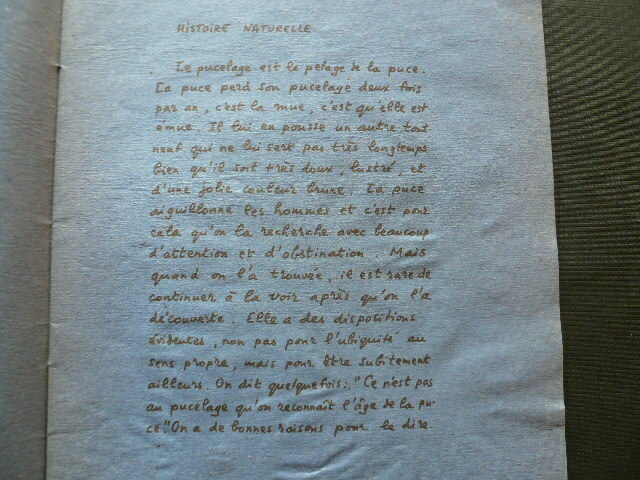 HISTOIRE NATURELLE
Le pucelage est le pelage de la puce.
La puce perd son pucelage deux fois
par an, c'est la mue, c'est qu'elle est
émue. Il lui en pousse un autre tout
neuf qui ne lui sert pas très longtemps
bien qu'il soit très doux, lustré, et
d'une jolie couleur brune. La puce
aiguillonne les hommes et c'est pour
cela qu'on la recherche avec beaucoup
d'attention et d'obstination. Mais
quand on l'a trouvée, il est rare de
continuer à la voir après qu'on l'a
découverte. Elle a des dispotitions
évidentes, non pas pour l'ubiquité au
sens propre, mais pour être subitement
ailleurs. On dit quelquefois: "Ce n'est pas
au pucelage qu'on reconnaît l'âge de la pu-
ce". On a de bonnes raisons pour le dire.